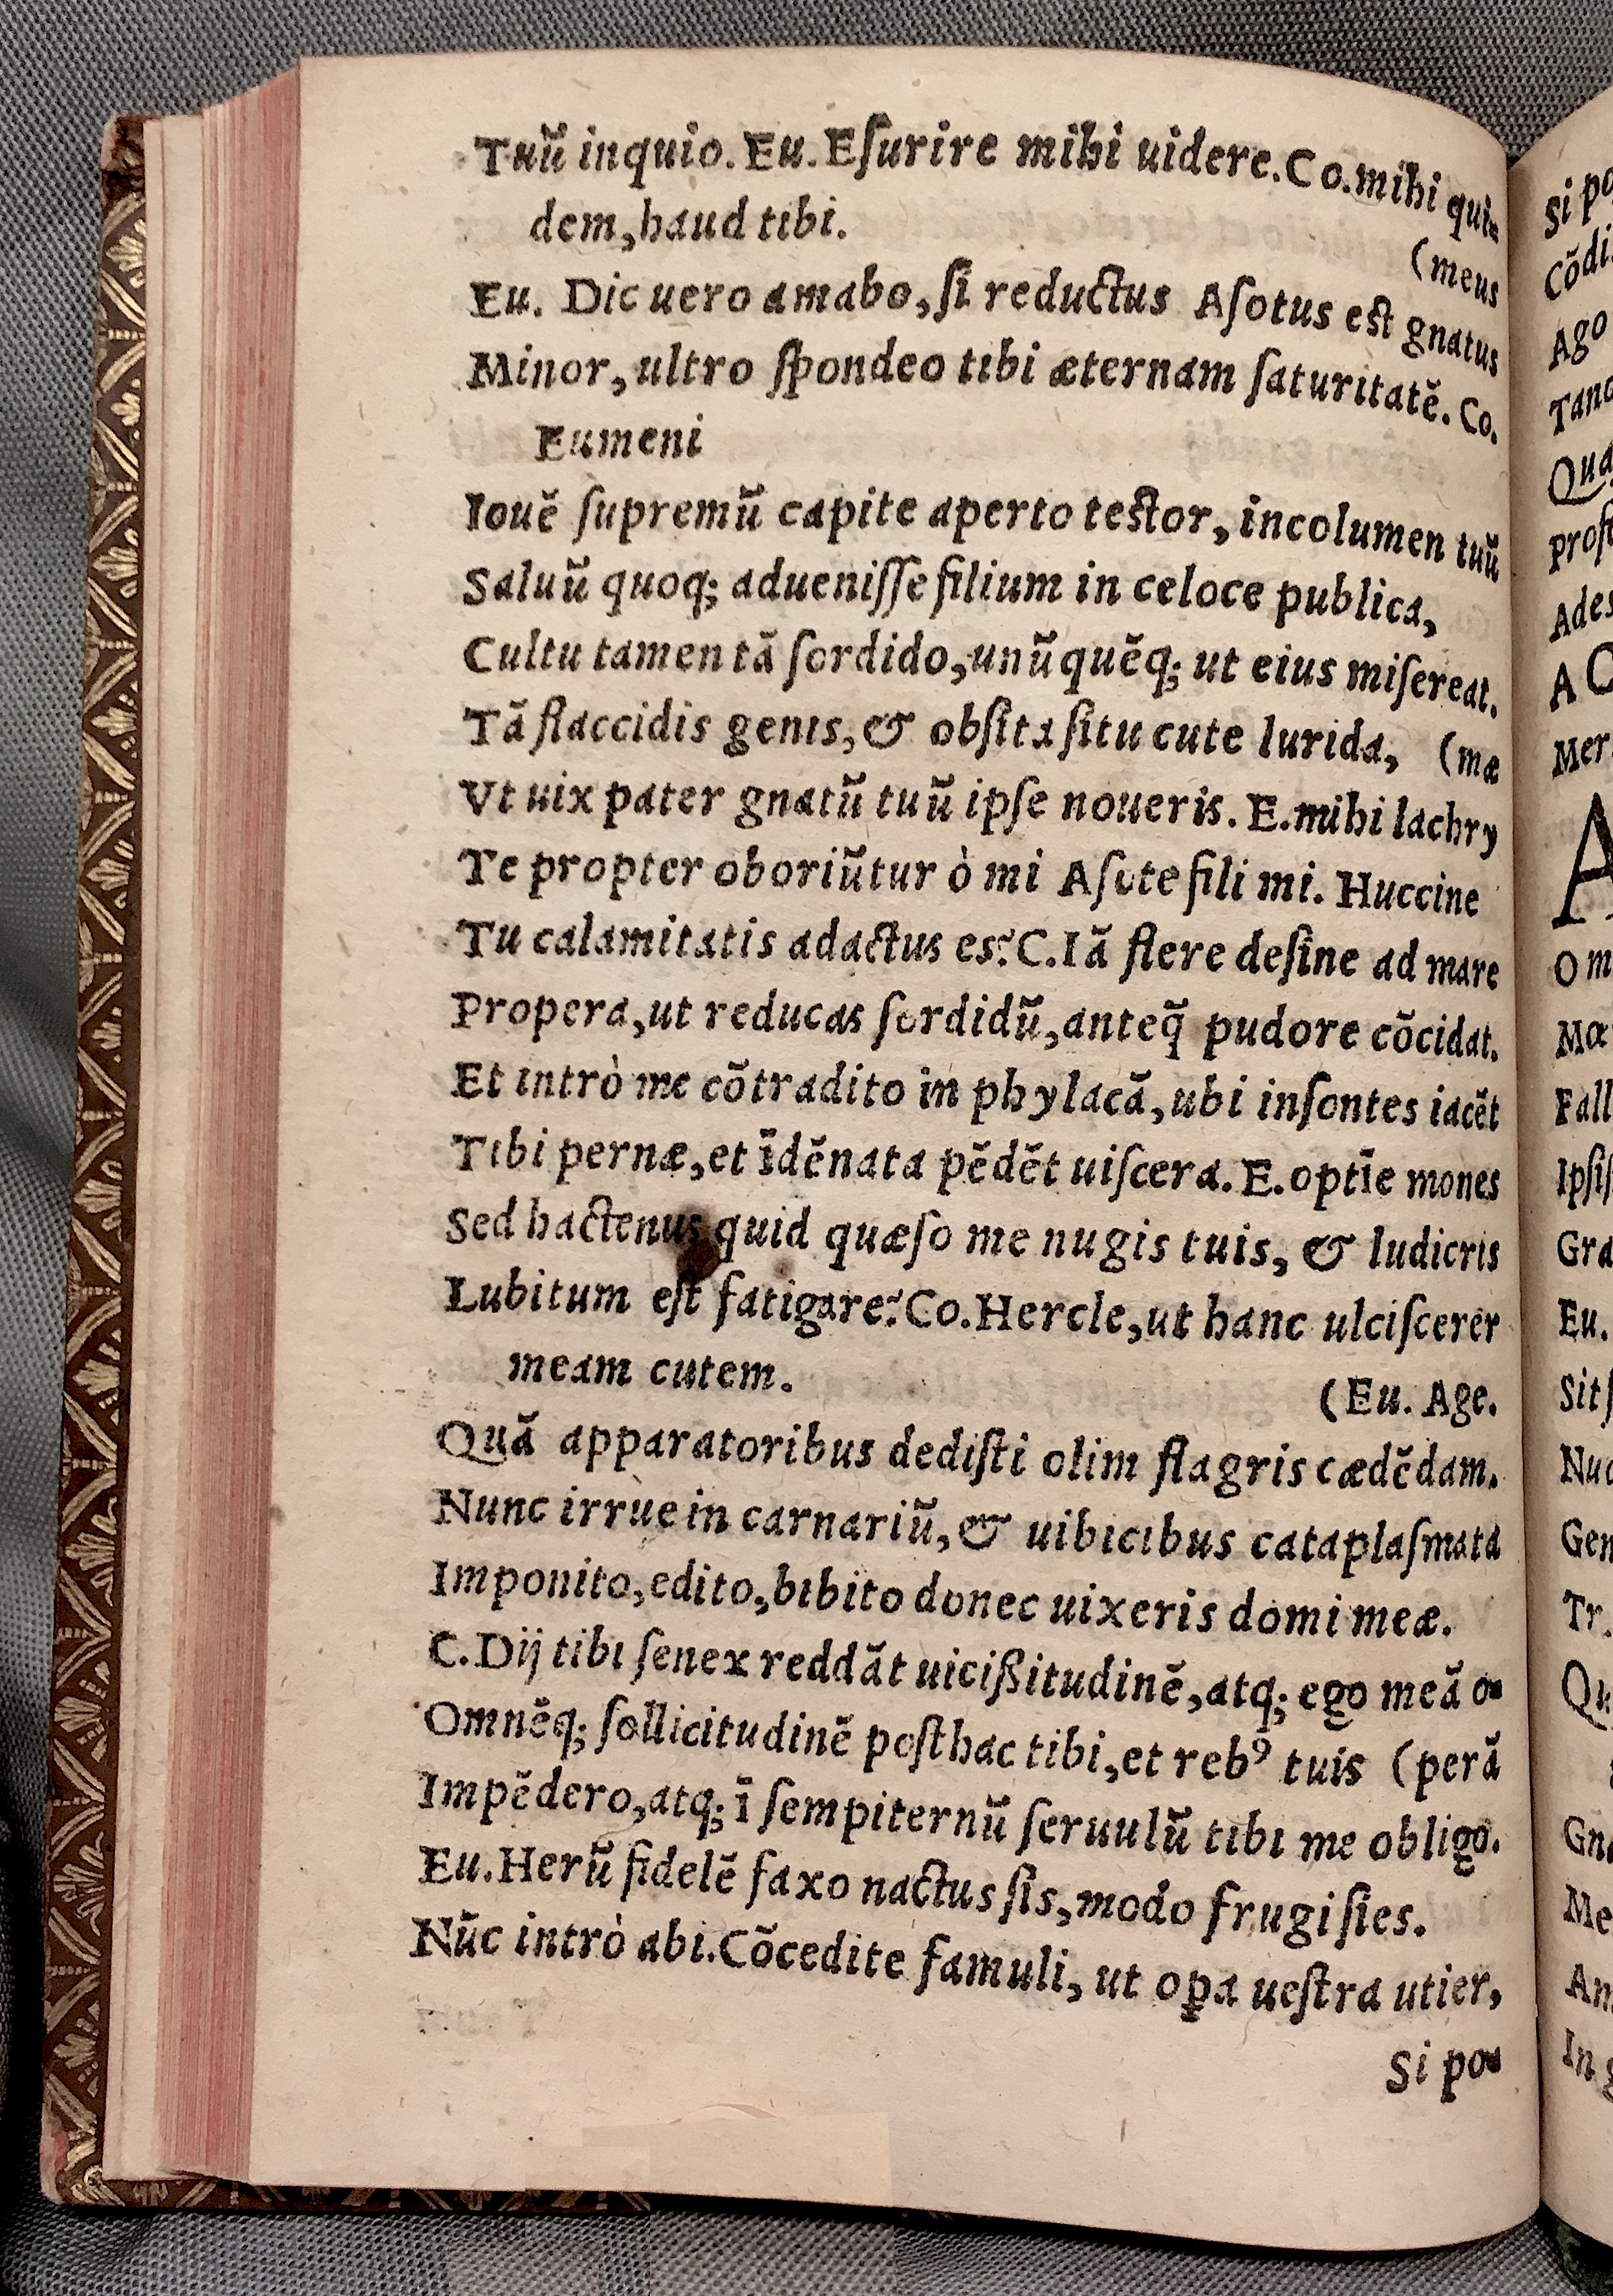 Tuũ inquio. Eu. Eſurire mihi uidere. Co. mihi qui-
dem, haud tibi.
(meus
Eu. Dic uero amabo, ſi reductus Aſotus eſt gnatus
Minor, ultro ſpondeo tibi æternam ſaturitatẽ. Co.
Eumeni
Iouẽ ſupremũ capite aperto teſtor, incolumen tuũ
Saluũ quoq; adueniſſe filium in celoce publica,
Cultu tamen tã ſordido, unũquẽq; ut eius miſereat.
Tã flaccidis genis, & obſita ſitu cute lurida, (mæ
Vt uix pater gnatũ tuũ ipſe noueris. E. mihi lachry
Te propter oboriũtur ò mi Aſote fili mi. Huccine
Tu calamitatis adactus es? C. Iã flere deſine ad mare
Propera, ut reducas ſordidũ, anteq̃ pudore cõcidat.
Et intrò me cõtradito in phylacã, ubi inſontes iacẽt
Tibi pernæ, et ĩdẽnata pẽdẽt uiſcera. E. optĩe mones
Sed hactenus quid quæſo me nugis tuis, & ludicris
Lubitum eſt fatigare? Co. Hercle, ut hanc ulciſcerer
meam cutem.
(Eu. Age.
Quã apparatoribus dediſti olim flagris cædẽdam.
Nunc irrue in carnariũ, & uibicibus cataplaſmata
Imponito, edito, bibito donec uixeris domi meæ.
C. Dij tibi ſenex reddãt uicißitudinẽ, atq; ego meã o-
Omnẽq; ſollicitudinẽ poſthac tibi, et rebꝰ tuis (perã
Impẽdero, atq; ĩ ſempiternũ ſeruulũ tibi me obligo.
Eu. Herũ fidelẽ faxo nactus ſis, modo frugi ſies.
Nũc intrò abi. Cõcedite famuli, ut oꝑa ueſtra utier,
Si po-
Si po
Cõdi
Ago
Tand
Qua
Proſ
Ades
A C
Mer
A
O m
Mœ
Fall
Ipſiſ
Gra
Eu.
Sit ſ
Nuc
Gen
Tr.
Qu
Gn
Me
An
In g